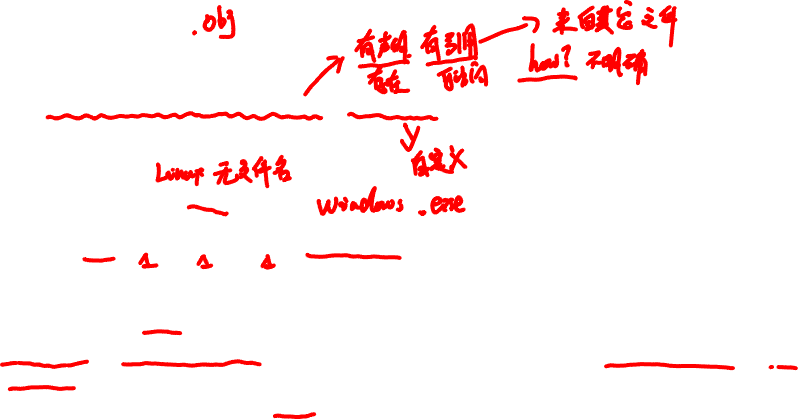 .obj
有声明 有引用 来自其它文件
存在 how? 不明确
自定义
Linux 无文件名
Windows .exe
1 1 1